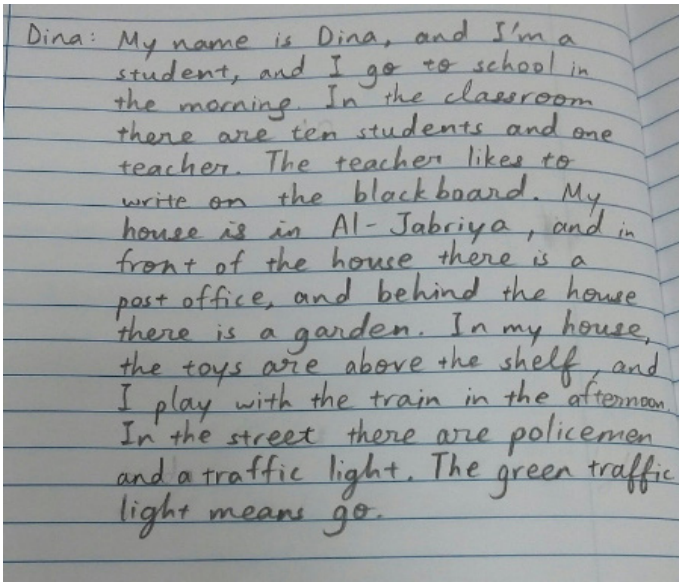 Dina: My name is Dina, and I'm a
student, and I go to school in
the morning. In the classroom
there are ten students and one
teacher. The teacher likes to
write on the blackboard. My
house is in Al-Jabriya, and in
front of the house there is a
post office, and behind the house
there is a garden. In my house,
the toys are above the shelf, and
I play with the train in the afternoon.
In the street there are policemen
and a traffic light. The green traffic
light means go.